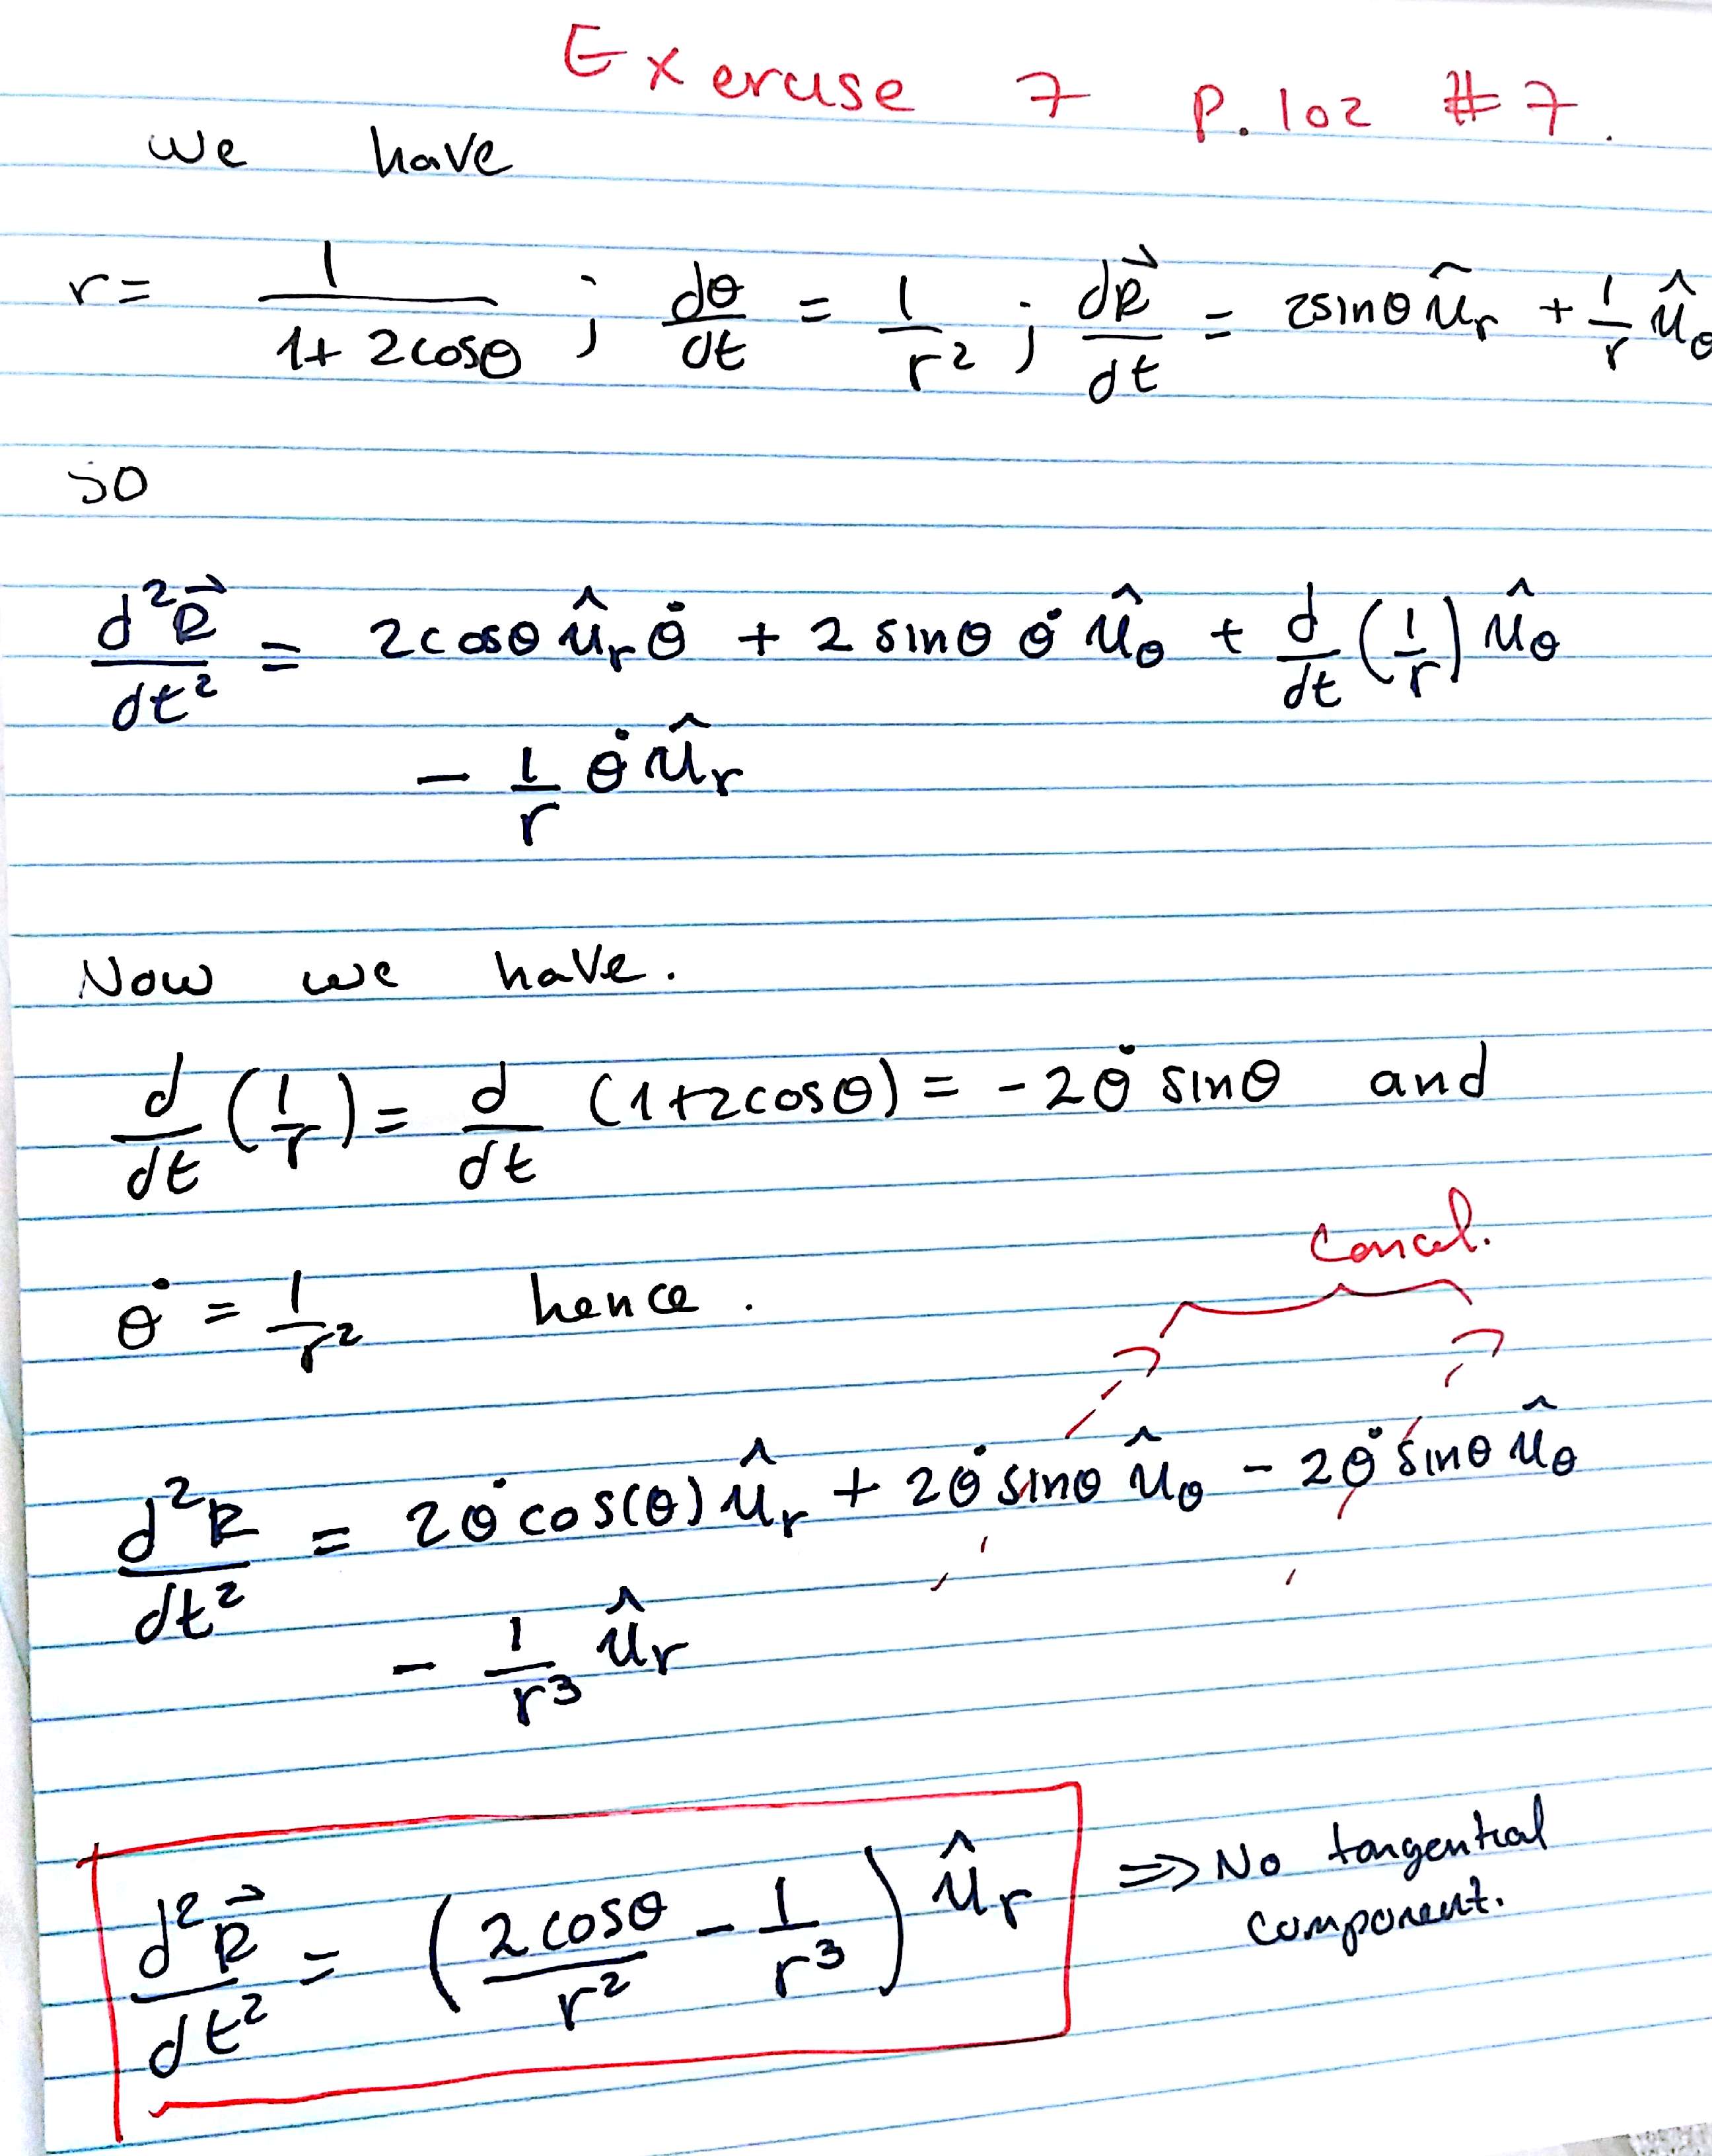 Exercise 7 P.102 #7.
we have
r = 1/(1+2cosθ) ; dθ/dt = 1/r² ; dR⃗/dt = 2sinθ û_r + 1/r û_θ
so
d²R⃗/dt² = 2cosθ û_r θ̇ + 2 sinθ θ̇ û_θ + d/dt (1/r) û_θ
- 1/r θ̇ û_r
Now we have.
d/dt (1/r) = d/dt (1+2cosθ) = -2θ̇ sinθ and
Cancel.
θ̇ = 1/r² hence.
d²R/dt² = 2θ̇ cos(θ) û_r + 2θ̇ sinθ û_θ - 2θ̇ sinθ û_θ
- 1/r³ û_r
d²R⃗/dt² = (2cosθ/r² - 1/r³) û_r ⇒ No tangential
component.